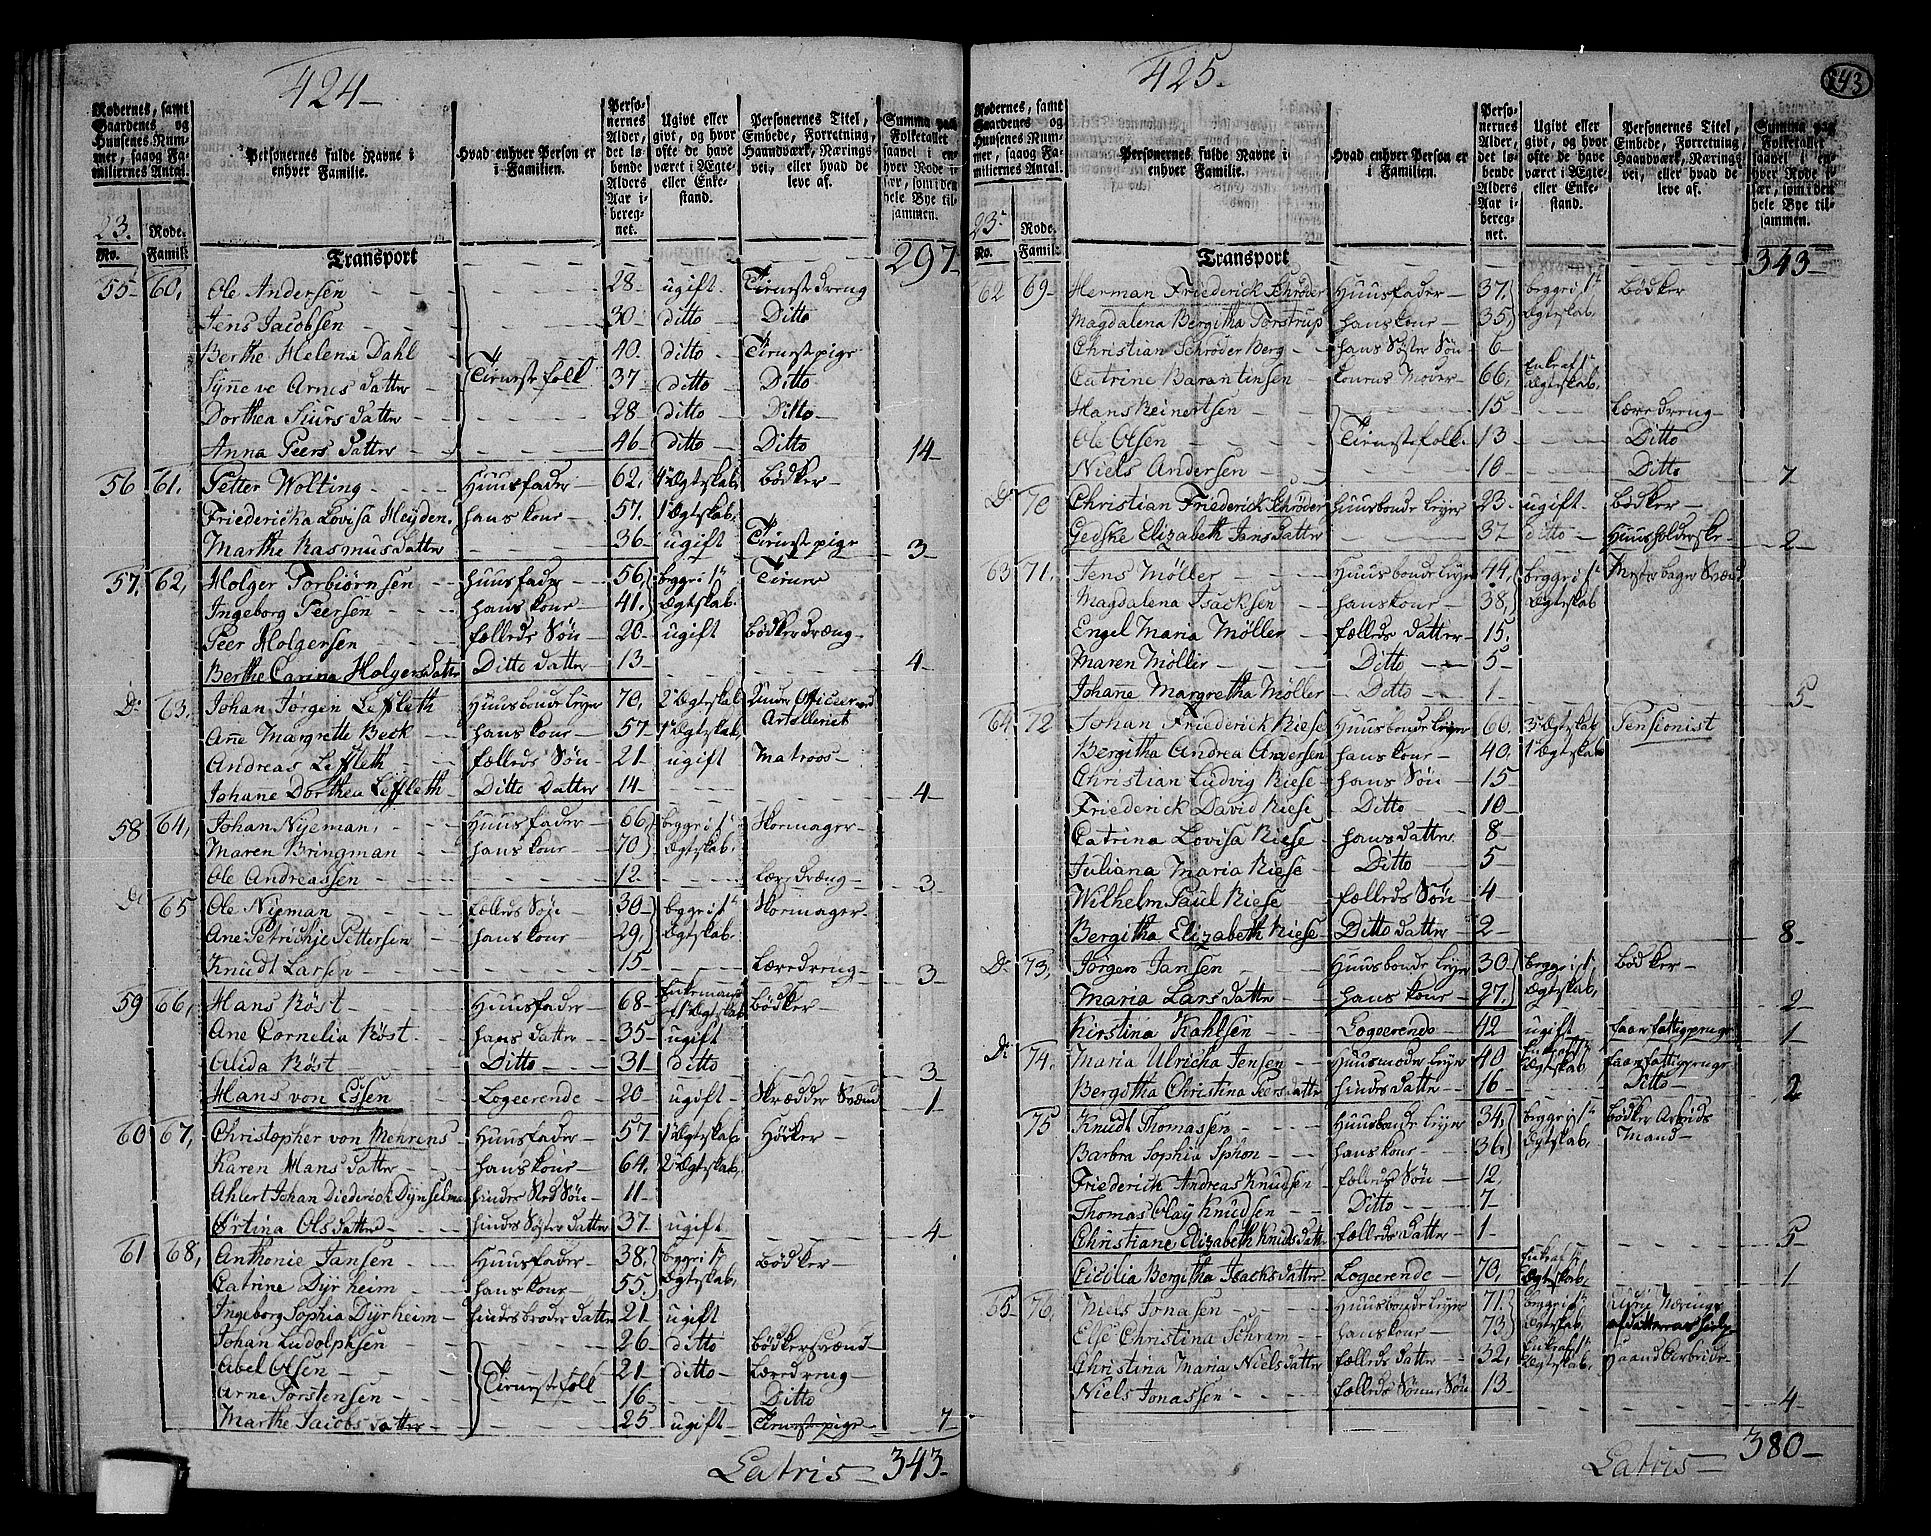 424
Rodernes, samt Gaardenes og Huusenes Nummer, saaog Familiernes Antal.
Personernes fulde Navne i enhver Familie.
Hvad enhver Person er i Familien.
Personernes Alder, det løbende Alders Aar iberegnet.
Ugivt eller givt, og hvor ofte de have været i Ægte- eller Enkestand.
Personernes Titel, Embede, Forretning, Haandværk, Næringsvei, eller hvad de leve af.
Summa paa Folketallet saavel i enhver Rode især, som i den hele Bye tilsammen.
23. Rode.
No. Famili:
Transport 297
55 60, Ole Andersen 28 ugift Tienestdreng
Jens Jacobsen 30 ditto Ditto
Berthe Helena Dahl 40 ditto Tienestpige
Synneve Arnes datter Tienestfolk 37 ditto Ditto
Dorthea Siurs datter 28 ditto Ditto
Anna Peers datter 46 ditto Ditto 14
56 61. Petter Wolting Huusfader 62, 1 Ægteskab Bødker
Friedericka Lovisa Heyden. hans kone 57. 1 Ægteskab.
Marthe Rasmusdatter 36 ugift Tienestpige 3
57, 62, Holger Torbiørnsen huusfader 56, begge i 1te Tiener
Ingeborg Peersen hans kone 41, Ægteskab.
Peer Holgersen fælleds Søn 20 ugift bødkerdræng
Berthe Carina Holgersdatter Ditto datter 13 4
Do 63. Johan Jørgen Leffleth Huusbonde leyer 70, 2 Ægteskab Under Officeer ved
Ane Margrette Beck hans kone 57 1 Ægteskab Artilleriet
Andreas Leffleth fælleds Søn 21 ugift Matroos
Johane Dorthea Leffleth Ditto datter 14 4
58 64, Johan Nyeman, Huusfader 66, begge i 1te Skomager
Maren Bringman hans kone 70 Ægteskab.
Ole Andreassen 12 Læredræng 3
Do 65 Ole Nyeman fælleds Søn 30 begge i 1te Skomager
Ane Petrichje Pettersen hans kone 29, Ægteskab.
Knudt Larsen 15 Læredreng 3
59 66, Hans Röst Huusfader 68 Enkemand Bødker
Ane Cornelia Röst hans datter 35 ugift
Alida Röst Ditto 31 ditto 3
Hans von Essen Logeerende 20 ugift Skrædder Svænd 1
60 67, Christopher von Mehrens Huusfader 57 1 Ægteskab Høker
Karen Hans datter hans kone 64, 2 Ægteskab,
Ahlert Johan Diederich Dynselman hindes Sted Søn 11
Ørtina Olsdatter hindes Søster datter 37 ugift 4
61 68, Anthonie Jansen Huusfader 38, begge i 1te Bødker
Catrine Dyrheim hans kone 55, Ægteskab,
Ingeborg Sophia Dyrheim hindes broder datter 21 ugift
Johan Ludolphsen 26 ditto bødkersvænd
Abel Olsen 21 ditto Læredreng
Arne Torstensen Tienestfolk 16 Ditto
Marthe Jacobs datter 25 ugift Tienestpige 7
Latris 343
425.
343
Rodernes, samt Gaardenes og Huusenes Nummer, saaog Familiernes Antal.
Personernes fulde Navne i enhver Familie.
Hvad enhver Person er i Familien.
Personernes Alder, det løbende Alders Aar iberegnet.
Ugivt eller givt, og hvor ofte de have været i Ægte- eller Enkestand.
Personernes Titel, Embede, Forretning, Haandværk, Næringsvei, eller hvad de leve af.
Summa paa Folketallet saavel i enhver Rode især, som i den hele Bye tilsammen.
23. Rode.
No. Famili:
Transport 343
62 69 Herman Friederick Schrøder Huusfader 37, begge i 1te Bødker
Magdalena Bergitha Torstrup hans kone 35, Ægteskab,
Christian Schrøder Berg hans Søster Søn 6
Catrine Barantinsen konens Moder 66, Ægteskab,
Hans Reinertsen 15 Læredreng
Ole Olsen Tienestefolk. 13 Ditto
Niels Andersen 10 Ditto 7
Do 70 Christian Friederick Schrøder huusbonde leyer 23 ugift Bødker
Gedske Elizabeth Jansdatter 37 ditto Huusholderske 2
63 71. Jens Møller Huusbonde leyer 44, begge i 1te
Magdalena Isacksen hans kone 38, Ægteskab
Engel Maria Møller fælleds datter 15,
Maren Møller Ditto 5
Johane Margretha Møller Ditto 1 5
64 72 Johan Friederick Riese Huusbonde leyer 60, 3 Ægteskab Pensionist
Bergitha Andrea Andersen hans kone 40, 1 Ægteskab
Christian Ludvig Riese hans Søn 15
Friederick David Riese Ditto 10
Catrina Lovisa Riese hans datter 8
Juliana Maria Riese Ditto 5
Wilhelm Paul Riese fælleds Søn 4
Bergitha Elizabeth Riese Ditto datter 2 8
Do 73, Jørgen Jansen Huusbonde leyer 30 begge i 1te bødker
Maria Lars datter hans kone 27, Ægteskab, 2
Kirstina Kahlsen Logeerende 42 ugift faar fattigpenge 1
Do 74. Maria Ulricha Jensen Huusmoder leyer 40 Ægteskab faar fattigpenge
Bergitha Christina Peersdatter hindes datter 16 Ditto 2
75 Knudt Thomassen Huusbonde leyer 34, begge i 1te bødker Arbeids
Barbra Sophia Sphon hans kone 36, Ægteskab, Mand
Friederick Andreas Knudsen fælleds Søn 12,
Thomas Olay Knudsen Ditto 7
Christiane Elizabeth Knudsdatter fælleds datter 1 5
Cicilia Bergitha Isacksdatter Logeerende 70, Ægteskab, 1
65 76, Niels Jonasen Huusbonde leyer 71, begge i 1te
Else Christina Schram hans kone 73 Ægteskab,
Christina Maria Nielsdatter fælleds datter 32, Ægteskab, Haand Arbeide
Niels Jonassen fælleds Sønne Søn 13 4
Latris 380